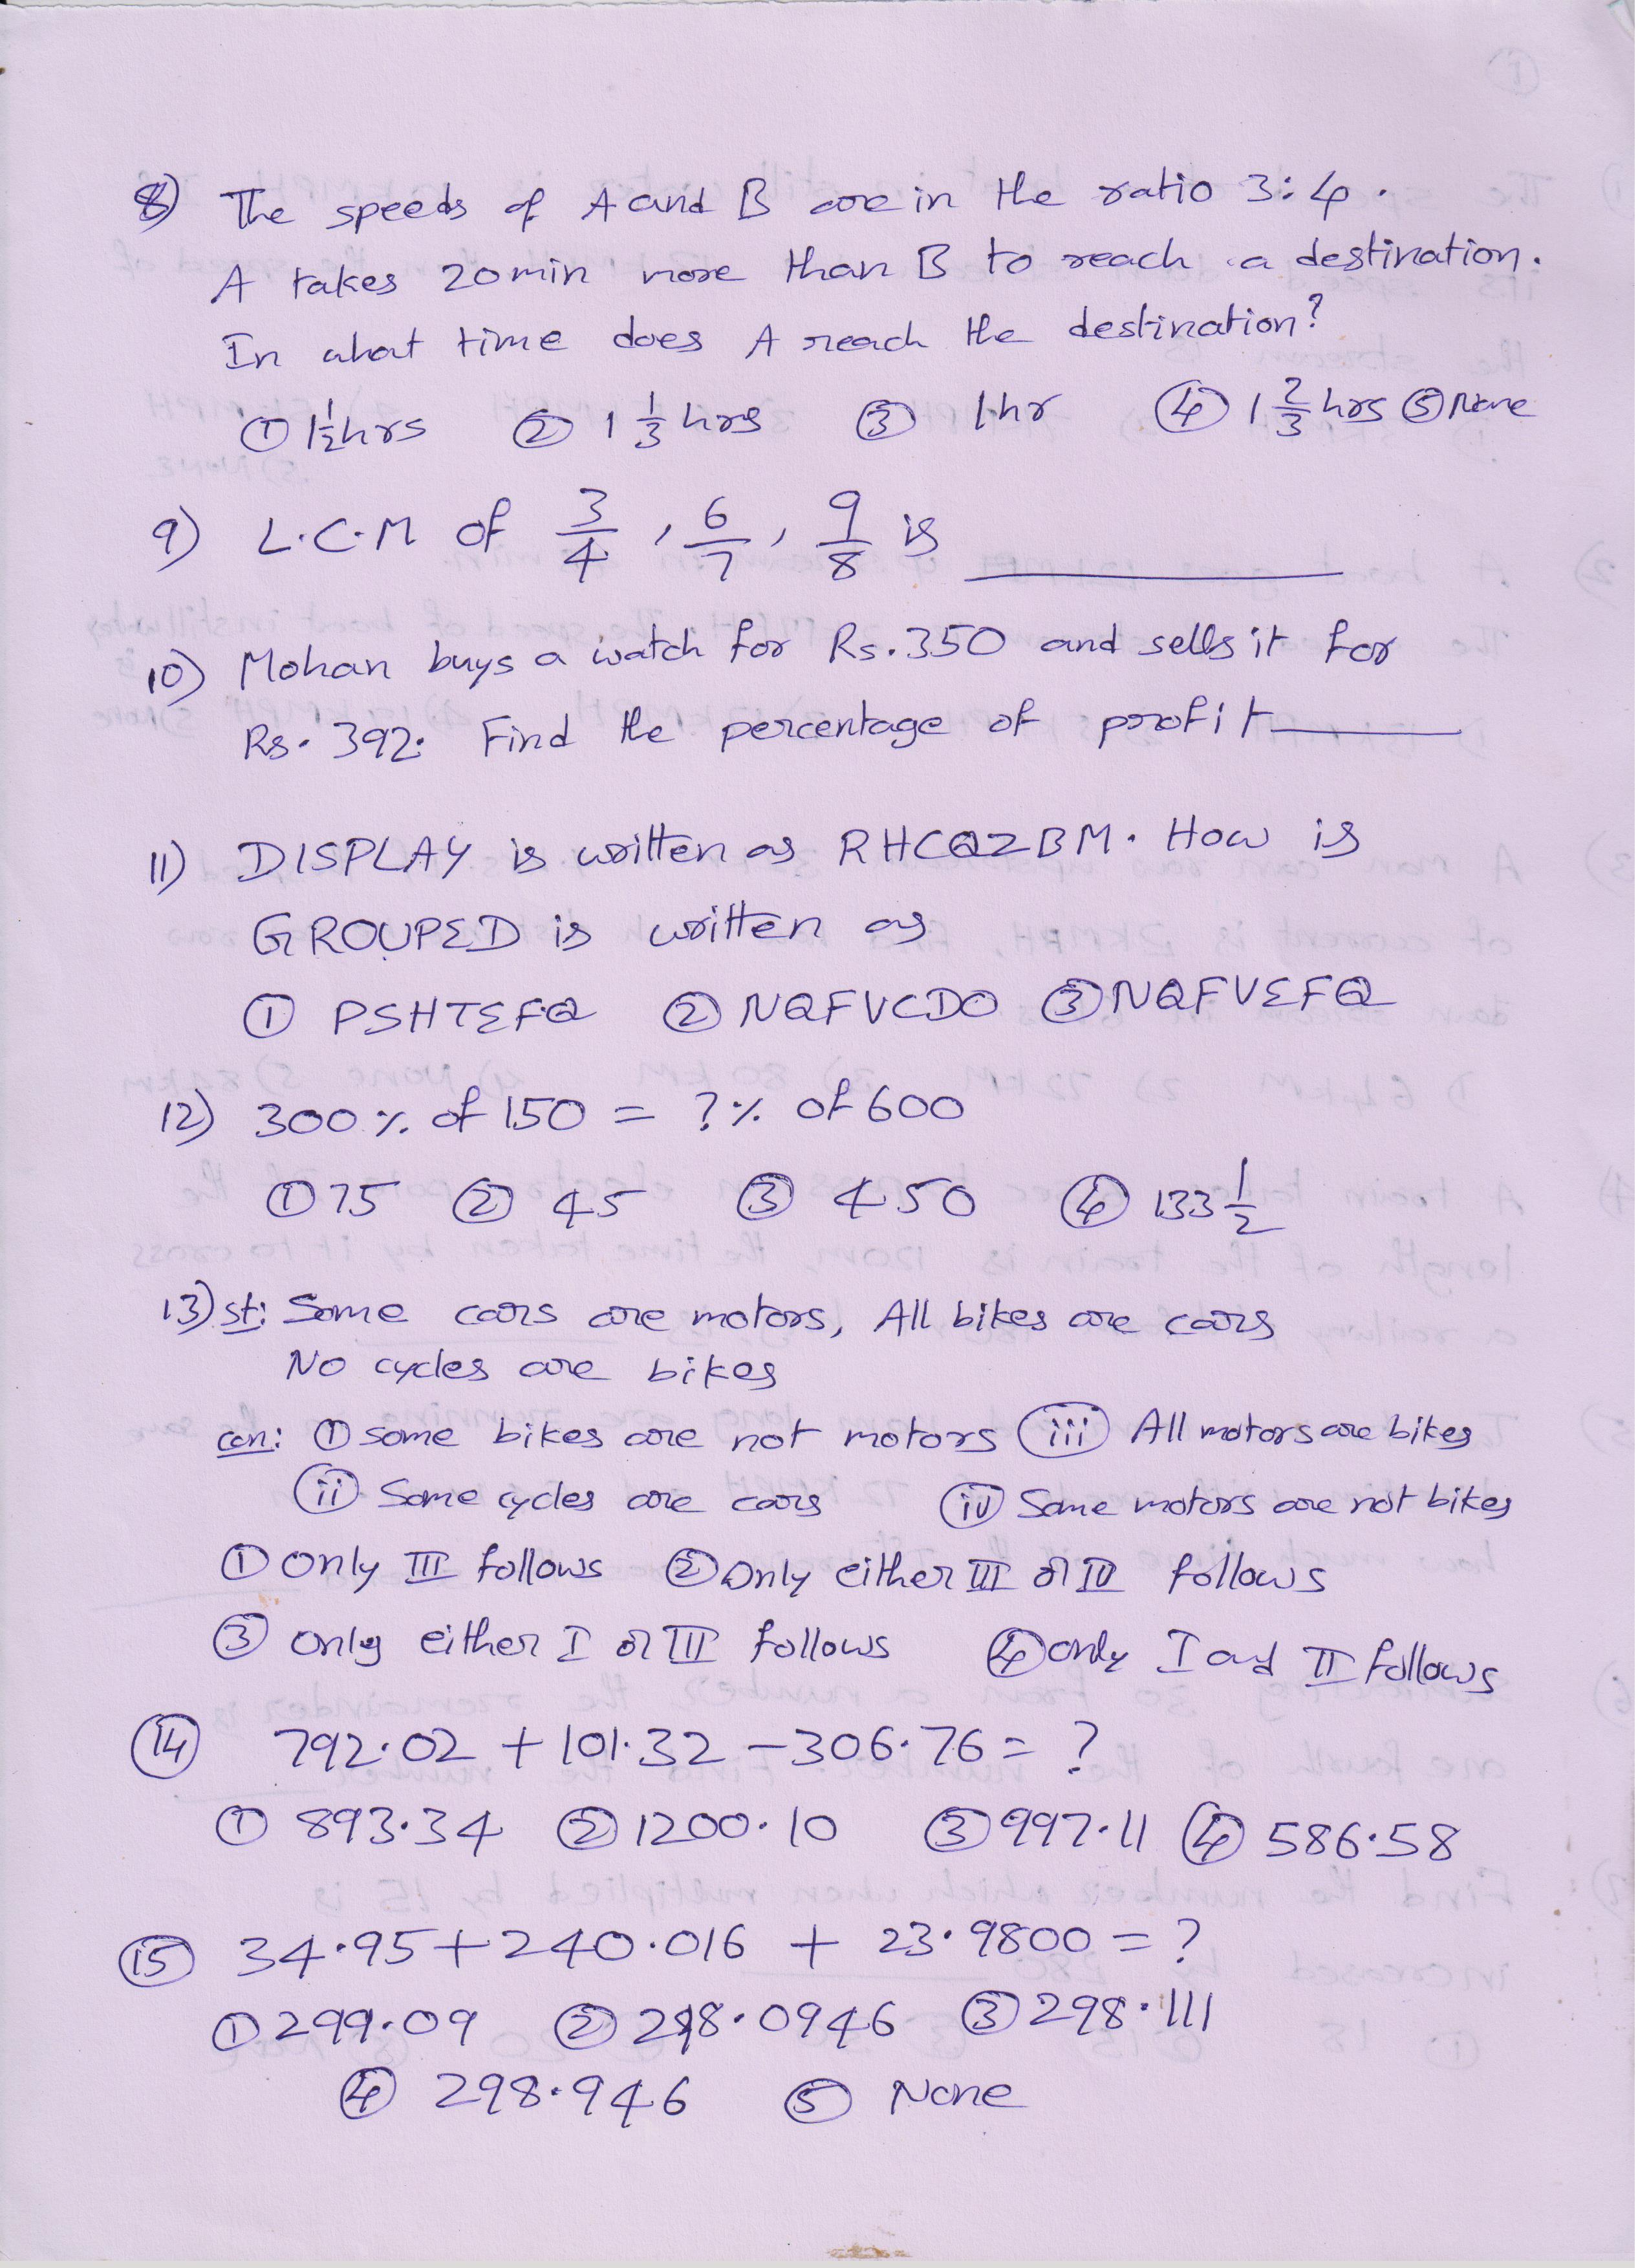 8) The speeds of A and B are in the ratio 3:4.
A takes 20min more than B to reach a destination.
In what time does A reach the destination?
① 1 1/2 hrs ② 1 1/3 hrs ③ 1hr ④ 1 2/3 hrs ⑤ None
9) L.C.M of 3/4, 6/7, 9/8 is ______
10) Mohan buys a watch for Rs.350 and sells it for
Rs. 392. Find the percentage of profit______
11) DISPLAY is written as RHCQZBM. How is
GROUPED is written as
① PSHTEFQ ② NQFVCDO ③ NQFVEFQ
12) 300% of 150 = ?% of 600
① 75 ② 45 ③ 450 ④ 133 1/2
13) st: Some cars are motors, All bikes are cars
No cycles are bikes
con: ① some bikes are not motors ⅲ All motors are bikes
ⅱ Some cycles are cars ⅳ Some motors are not bikes
① Only III follows ② Only either III or IV follows
③ Only either I or III follows ④ only I and II follows
⑭ 792.02 + 101.32 - 306.76 = ?
① 893.34 ② 1200.10 ③ 997.11 ④ 586.58
⑮ 34.95 + 240.016 + 23.9800 = ?
① 299.09 ② 298.0946 ③ 298.111
④ 298.946 ⑤ None